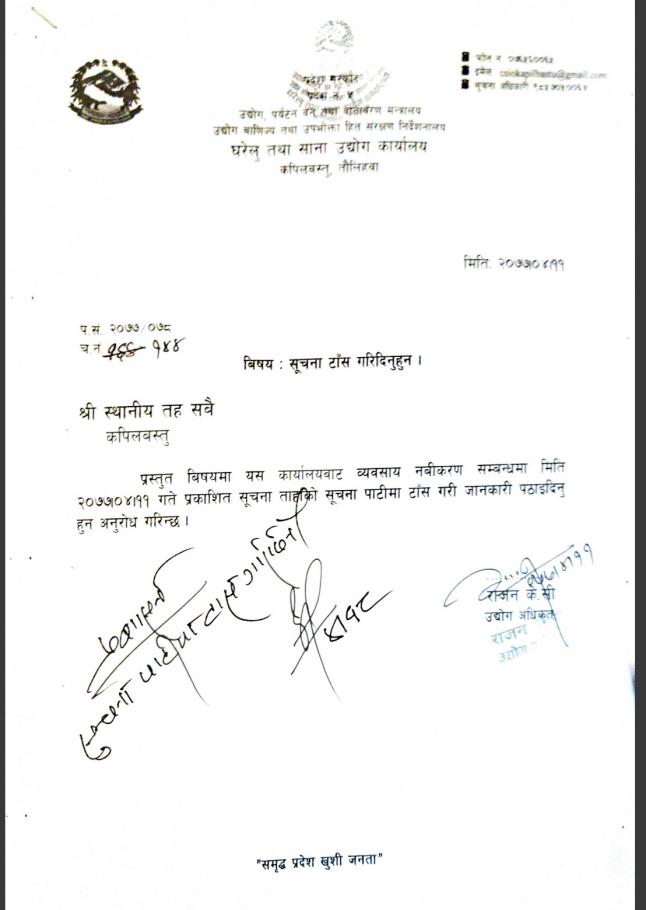 प्रदेश सरकार
प्रदेश नं. ५
उद्योग, पर्यटन वन तथा वातावरण मन्त्रालय
उद्योग बाणिज्य तथा उपभोक्ता हित संरक्षण निर्देशनालय
घरेलु तथा साना उद्योग कार्यालय
कपिलबस्तु, तौलिहवा
फोन नं
इमेल csiokapilbastu@gmail.com
सूचना अधिकारी
मिति: २०७७।०४।११
प.सं. २०७७/०७८
च.न. १४४
बिषय : सूचना टाँस गरिदिनुहुन ।
श्री स्थानीय तह सबै
कपिलबस्तु
प्रस्तुत बिषयमा यस कार्यालयवाट व्यवसाय नबीकरण सम्बन्धमा मिति
२०७७।०४।११ गते प्रकाशित सूचना ताहाँको सूचना पाटीमा टाँस गरी जानकारी पठाइदिनु
हुन अनुरोध गरिन्छ ।
राजन के.सी
उद्योग अधिकृत
राजन
उद्योग
"समृद्ध प्रदेश खुशी जनता"